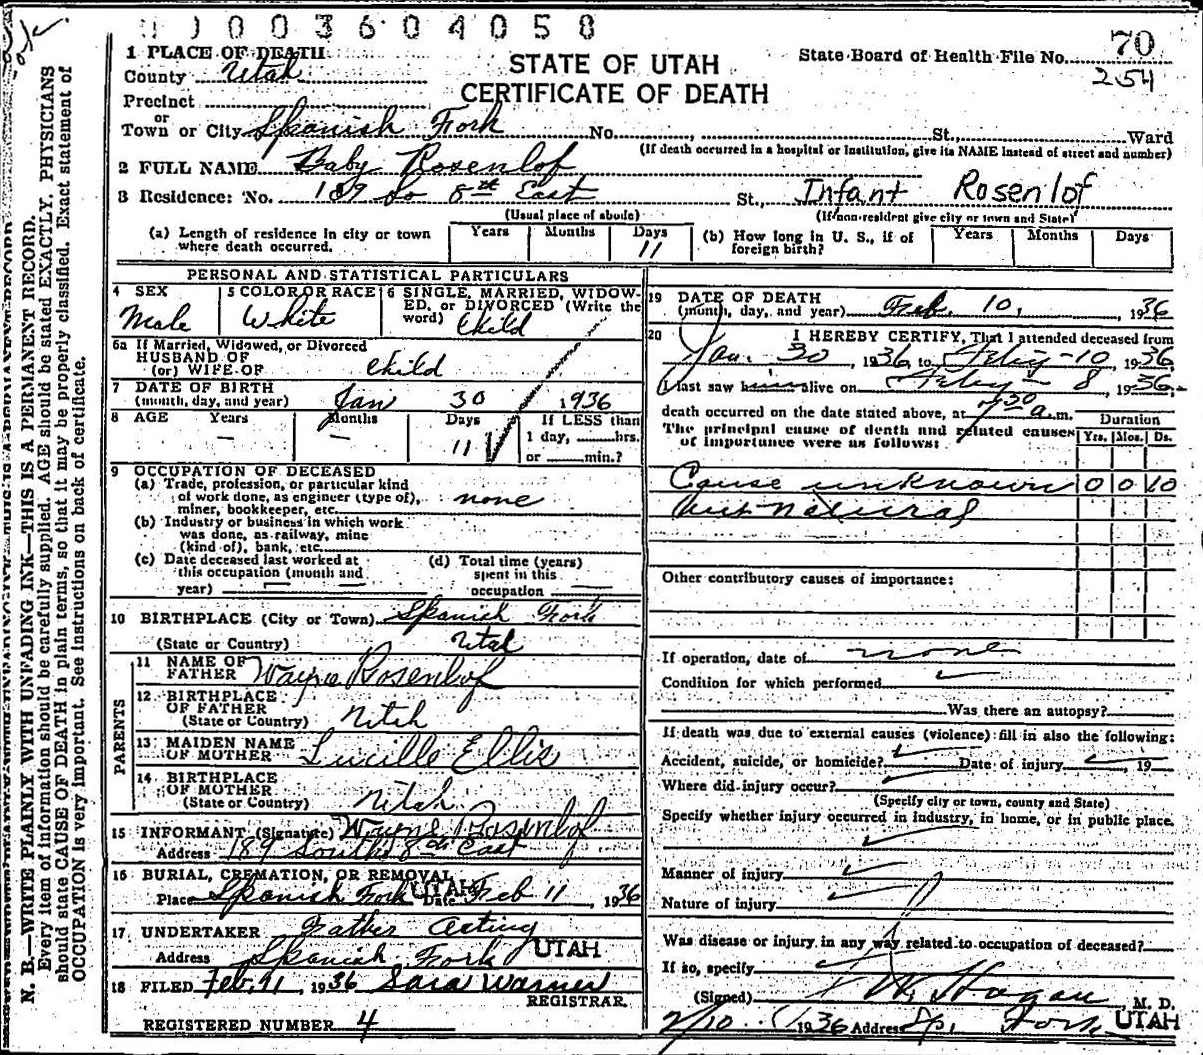 0 0 3 6 0 4 0 5 8
STATE OF UTAH
CERTIFICATE OF DEATH
State Board of Health File No. 70
254
1 PLACE OF DEATH
County Utah
Precinct
or
Town or City Spanish Fork No. , St., Ward
(If death occurred in a hospital or institution, give its NAME instead of street and number)
2 FULL NAME Baby Rosenlof
3 Residence: No. 189 So 8th East St., Infant Rosenlof
(Usual place of abode) (If non-resident give city or town and State)
(a) Length of residence in city or town where death occurred. Years Months Days 11
(b) How long in U. S., if of foreign birth? Years Months Days
PERSONAL AND STATISTICAL PARTICULARS
4 SEX Male
5 COLOR OR RACE White
6 SINGLE, MARRIED, WIDOWED, or DIVORCED (Write the word) Child
6a If Married, Widowed, or Divorced
HUSBAND OF
(or) WIFE OF child
7 DATE OF BIRTH
(month, day, and year) Jan 30 1936
8 AGE Years – Months – Days 11 If LESS than
1 day, hrs.
or min.?
9 OCCUPATION OF DECEASED
(a) Trade, profession, or particular kind
of work done, as engineer (type of),
miner, bookkeeper, etc. none
(b) Industry or business in which work
was done, as railway, mine
(kind of), bank, etc.
(c) Date deceased last worked at
this occupation (month and
year)
(d) Total time (years)
spent in this
occupation
10 BIRTHPLACE (City or Town) Spanish Fork
(State or Country) Utah
PARENTS
11 NAME OF
FATHER Wayne Rosenlof
12 BIRTHPLACE
OF FATHER
(State or Country) Utah
13 MAIDEN NAME
OF MOTHER Lucille Ellis
14 BIRTHPLACE
OF MOTHER
(State or Country) Utah
15 INFORMANT (Signature) Wayne Rosenlof
Address 189 South 8th East
16 BURIAL, CREMATION, OR REMOVAL
Place Spanish Fork UTAH Date Feb 11, 1936
17 UNDERTAKER Father Acting
Address Spanish Fork UTAH
18 FILED Feb. 11, 1936 Sara Warner
REGISTRAR.
REGISTERED NUMBER 4
19 DATE OF DEATH
(month, day, and year) Feb. 10, , 1936
20 I HEREBY CERTIFY, That I attended deceased from
Jan. 30, 1936, to Feby-10, 1936,
I last saw h alive on Feby- 8, 1936,
death occurred on the date stated above, at 7 30 a.m.
The principal cause of death and related causes
of importance were as follows:
Duration
Yrs. Mos. Ds.
Cause unknown 0 0 10
but natural
Other contributory causes of importance:
If operation, date of none
Condition for which performed
Was there an autopsy?
If death was due to external causes (violence) fill in also the following:
Accident, suicide, or homicide? Date of injury , 19
Where did injury occur?
(Specify city or town, county and State)
Specify whether injury occurred in industry, in home, or in public place.
Manner of injury
Nature of injury
Was disease or injury in any way related to occupation of deceased?
If so, specify
(Signed) Hagan, M. D.
2/10 1936 Address Sp. Fork UTAH
N. B.—WRITE PLAINLY WITH UNFADING INK—THIS IS A PERMANENT RECORD.
Every item of information should be carefully supplied. AGE should be stated EXACTLY. PHYSICIANS
should state CAUSE OF DEATH in plain terms, so that it may be properly classified. Exact statement of
OCCUPATION is very important. See instructions on back of certificate.